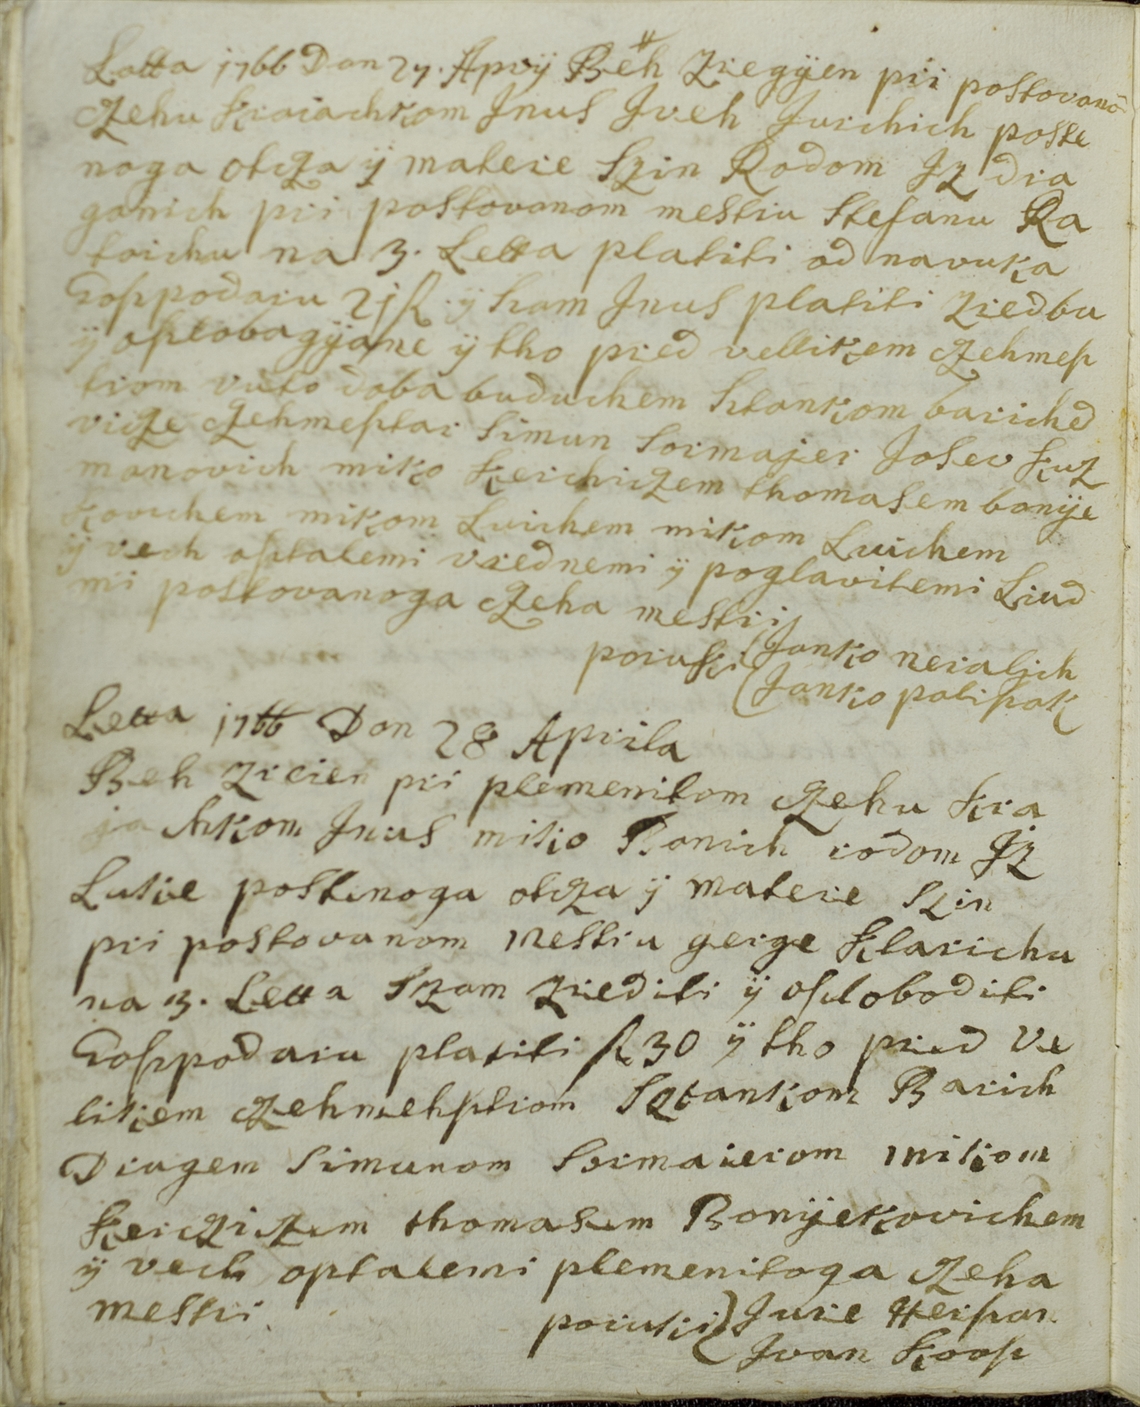 Letta 1766 Dan 27. Apryj Beh zregÿen pri postovano
czehu kraiachkom Jnus Jveh Jurchich poste
noga otcza ÿ matere Szin Rodom Jz dra
ganich pri postovanom mestru Stefanu Ra
toichu na 3. Letta platiti od navuka
Gospodaru 21 fl. ÿ ham Jnus platiti zredbu
ÿ oslobagÿane ÿ tho pred vellikem czehmes
trom vuto doba buduchem Stankom bariched
vicze czehmestar Simun Sormajer Josev kuz
manovich miko kerchiczem thomasem bonÿe
kovichem mikom Luichem mikom Luichem
ÿ vech ostalemi vrednemi ÿ poglavitemi Liud
mi postovanoga czeha mestri
poruki (Janko neralich
(Janko polisak
Letta 1766 Dan 28 Aprila
Beh zrcien pri plemenitom czehu kra
ja chkom Jnus miko Banich rodom Jz
Lutie postenoga otcza ÿ matere Szin
pri postovanom mestru gerge klarichu
na 3. Letta Szam zrediti ÿ osloboditi
Gospodaru platiti fl 30 ÿ tho pred Ve
likem czehmehstrom Sztankom Barich
Drugem Simunom Sormaierom mikom
kercziczem thomasem Bonÿekovichem
ÿ vech optalemi plemenitoga czeha
mestri
poruki) Jure Herpan
Jvan koos